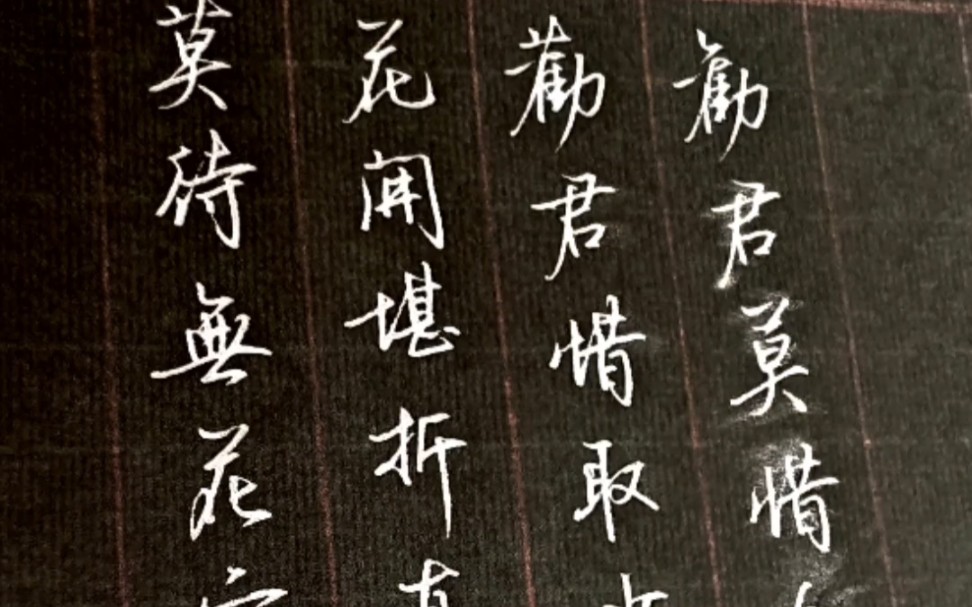 勸君莫惜
勸君惜取
花開堪折
莫待無花